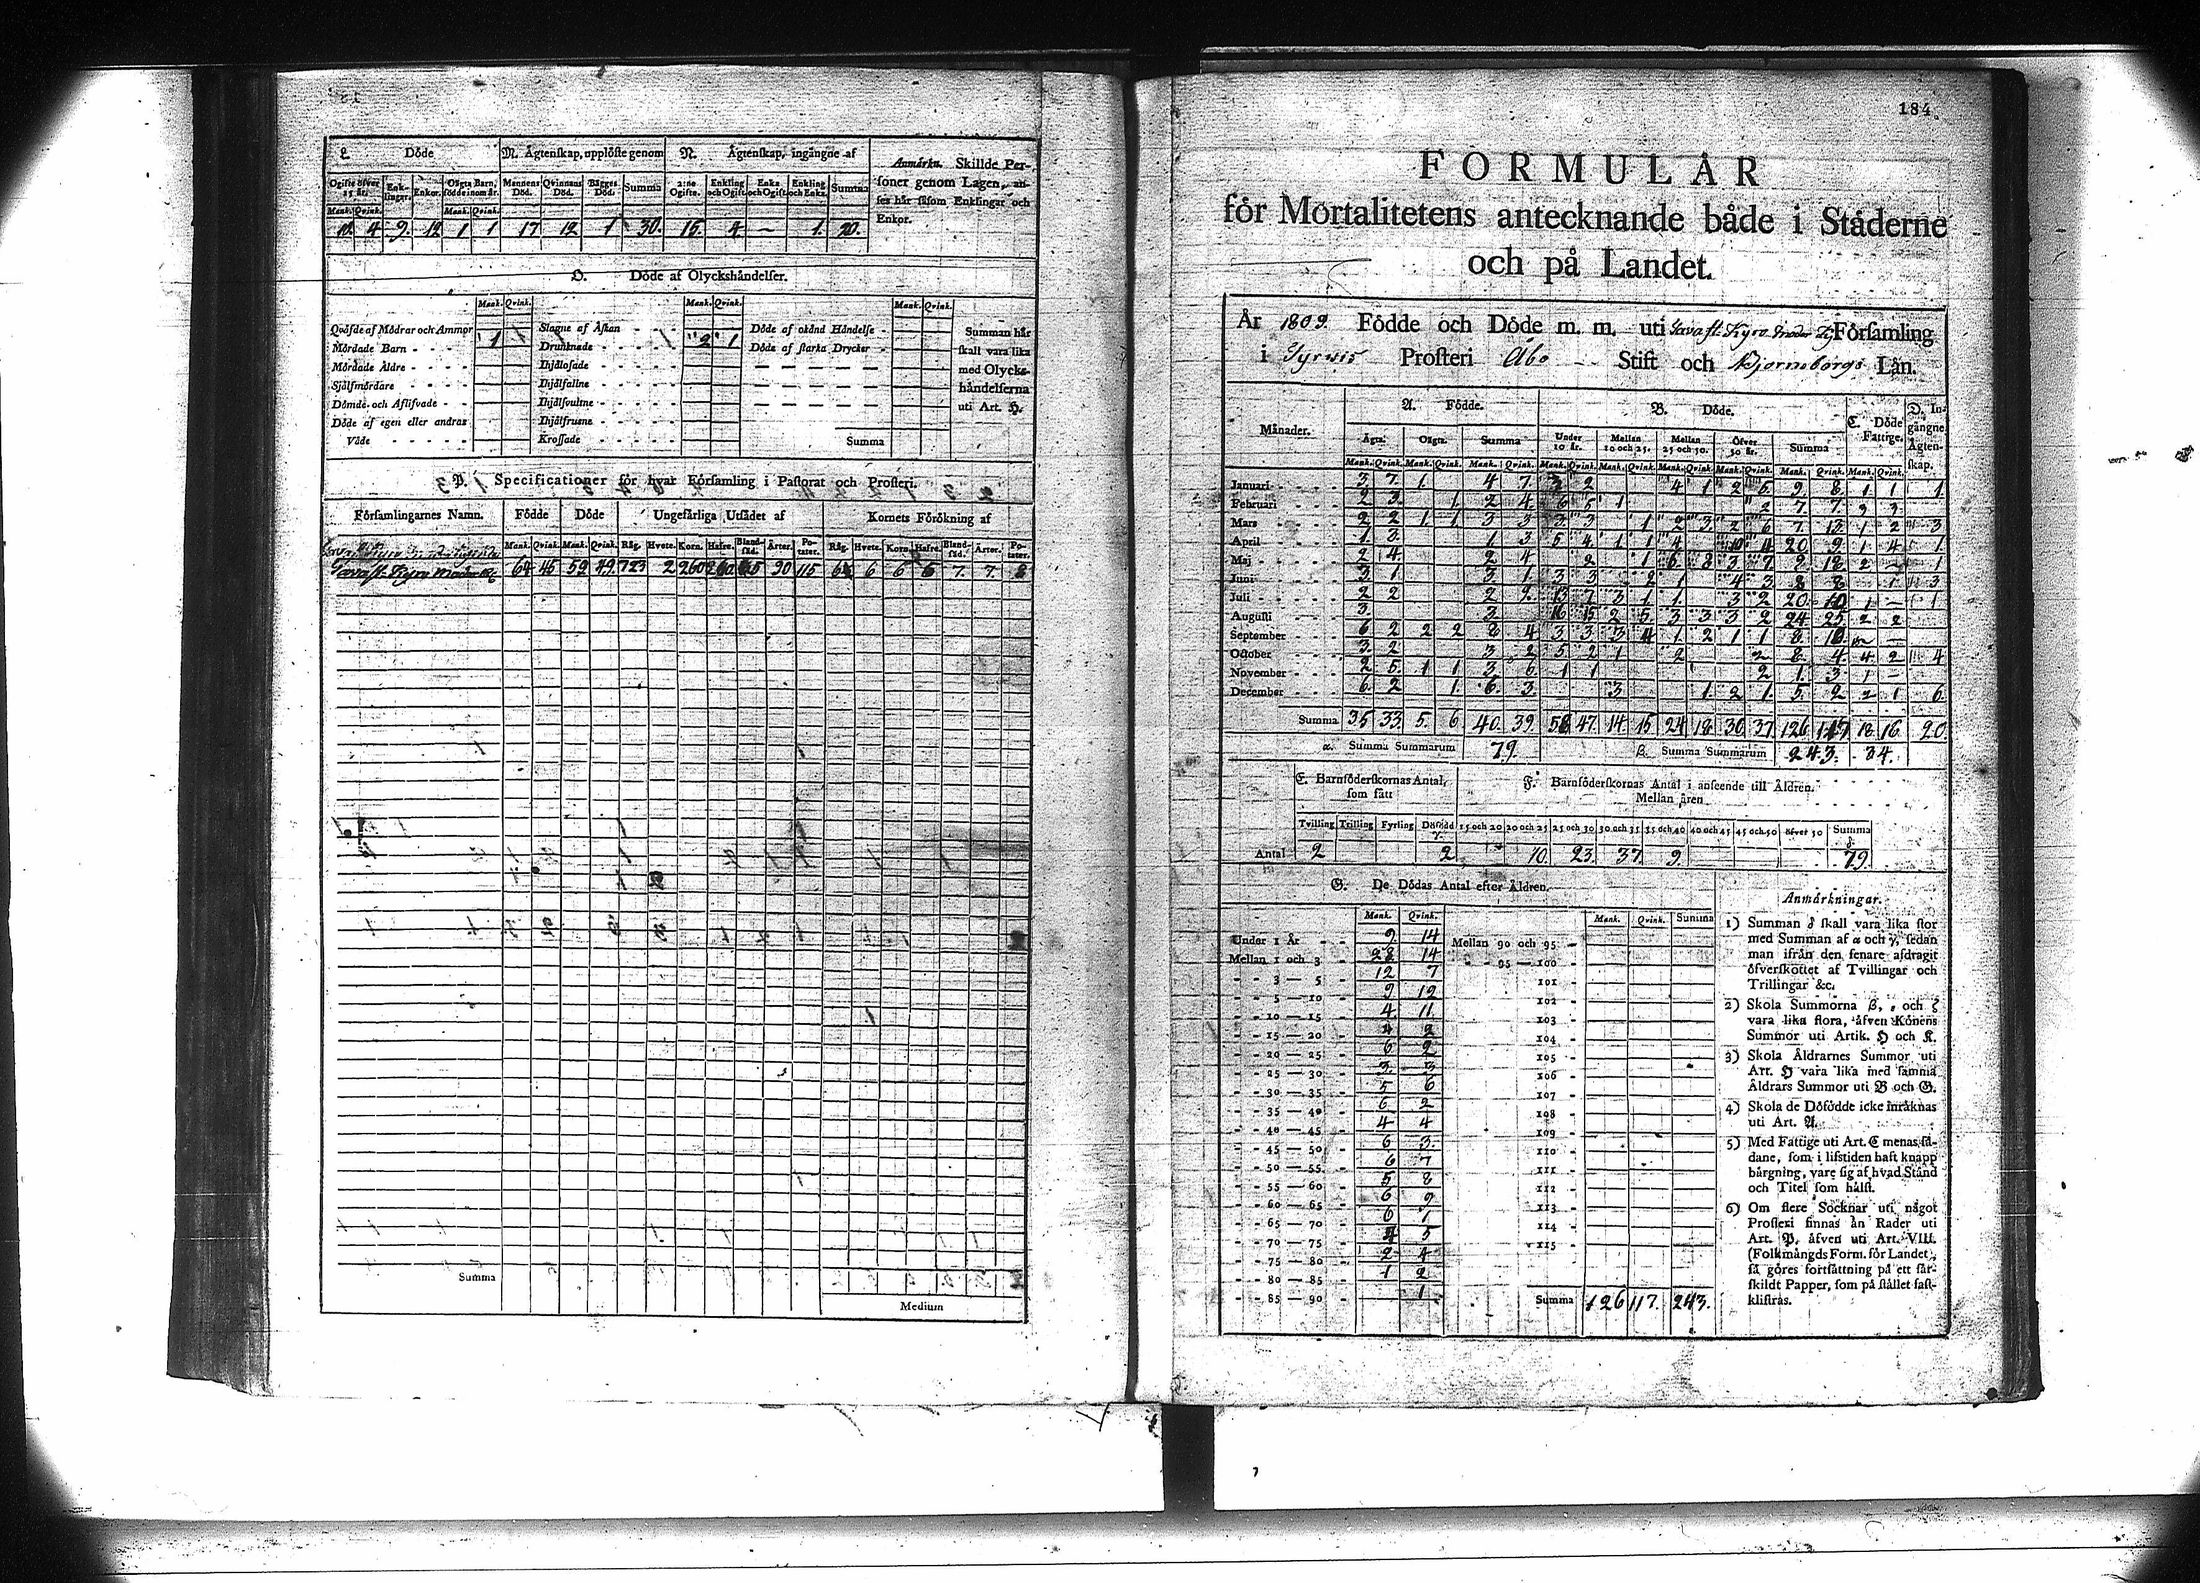 L. Döde
M. Ägtenskap, upplöste genom
N. Ägtenskap, ingångne af
Anmärkn. Skillde Per-
soner genom Lagen, an-
ses här såsom Enklingar och
Enkor.
Ogifte öfver 25 år. Enk-lingar. Enkor. Oägta Barn, födde inom år. Mannens Död. Qvinnans Död. Bägges Död. Summa 2:ne Ogifte. Enkling och Ogift. Enka och Ogift. Enkling och Enka. Summa
Mank. Qvink. Mank. Qvink.
12. 4 9. 12 1 1 17 12 1 30. 15. 4 — 1. 20.
O. Döde af Olyckshändelser.
Mank. Qvink. Mank. Qvink. Mank. Qvink.
Qväfde af Mödrar och Ammor 1
Mördade Barn
Mördade Äldre
Själfmördare
Dömde och Aflifvade
Döde af egen eller andras
Våde
Slagne af Åskan
Drunknade 2 1
Ihjälosade
Ihjälfallne
Ihjälsvultne
Ihjälfrusne
Krossade
Döde af okänd Händelse
Döde af starka Drycker
Summa
Summan här
skall vara lika
med Olycks-
händelserna
uti Art. H.
P. Specificationer för hvar Församling i Pastorat och Prosteri.
Församlingarnes Namn. Födde Döde Ungefärliga Utsädet af Kornets Förökning af
Mank. Qvink. Mank. Qvink. Råg. Hvete. Korn. Hafre. Bland-säd. Ärter. Po-tater. Råg. Hvete. Korn. Hafre. Bland-säd. Ärter. Po-tater.
Tavast Kyro Moder K. 64 45 59 49. 723 2 260 260 65 30 115 6 6 6 6 7. 7. 8
Summa
Medium
184.
FORMULÄR
för Mortalitetens antecknande både i Städerne
och på Landet.
År 1809. Födde och Döde m. m. uti Tavast Kyro Moder Ky Församling
i Tyrvis Prosteri Åbo Stift och Björneborgs Län.
Månader. A. Födde. B. Döde. C. Döde Fattige. D. In-gångne Ägten-skap.
Ägta. Oägta. Summa Under 10 år. Mellan 10 och 25. Mellan 25 och 50. Öfver 50 år. Summa
Mank. Qvink. Mank. Qvink. Mank. Qvink. Mank. Qvink. Mank. Qvink. Mank. Qvink. Mank. Qvink. Mank. Qvink. Mank. Qvink.
Januari 3. 7. 1. 4 7. 3 2 4 1 2 5. 9. 8. 1. 1 1
Februari 2 3. 1. 2 4. 6 5 1 2 7. 7. 2 2
Mars 2 2 1. 1 3 3 3 3 1 2 3. 2 6 7. 13 1 2 3
April 1 3. 1. 3 5 4 1 1 4 10 4 20. 9. 1 4 1
Maj 2 4. 2 4 2 1 6 8 3 7 9. 18 2 — 1
Juni 3. 1. 3 1 3 3 2 1 4 3 8 8 1 3
Juli 2 2 2 2. 13 7 3 1 1. 3 2 20. 10 1 — 1
Augusti 3. 3. 16 15 2 5 3 3 3 2 24 25 2 2
September 6 2 2 2 8 4 3 3 3 4 1 2 1 1 8 10.
October 3. 2 3 2 5 2 1 2 2 8. 4. 4 2 4
November 2 5. 1 1 3. 6 1 1 2 1. 3. 1 —
December 6. 2 1. 6. 3 3 1 2 1. 5. 2 2 1 6.
Summa 35 33. 5. 6 40. 39. 58 47. 14 15. 24 18 30 37. 126 117 18 16. 20.
α. Summa Summarum 79. β. Summa Summarum 243. 34.
E. Barnföderskornas Antal, som fått
F. Barnföderskornas Antal i anseende till Åldren.
Mellan åren
Tvilling Trilling Fyrling Dödfödd γ. 15 och 20 20 och 25 25 och 30 30 och 35 35 och 40 40 och 45 45 och 50 öfver 50 Summa δ
Antal 2 2 10. 23. 37. 9. 79.
G. De Dödas Antal efter Åldren.
Mank. Qvink. Mank. Qvink. Summa
Under 1 År 9. 14 Mellan 90 och 95
Mellan 1 och 3 28 14 95 — 100
3 — 5 12 7 101
5 — 10 9 12 102
10 — 15 4 11 103
15 — 20 4 2 104
20 — 25 6 2 105
25 — 30 3. 3 106
30 — 35 5 6 107
35 — 40 6 2 108
40 — 45 4 4 109
45 — 50 6 3. 110
50 — 55 6 7 111
55 — 60 5 8 112
60 — 65 6 9 113
65 — 70 6 1 114
70 — 75 4 5 115
75 — 80 2 4
80 — 85 1 2
85 — 90 1 Summa 126 117. 243.
Anmärkningar.
1) Summan δ skall vara lika stor
med Summan af α och γ, sedan
man ifrån den senare afdragit
öfverskottet af Tvillingar och
Trillingar &c.
2) Skola Summorna β, ε och ζ
vara lika stora, äfven Könens
Summor uti Artik. H och K.
3) Skola Åldrarnes Summor uti
Art. H vara lika med samma
Åldrars Summor uti B och G.
4) Skola de Döfödde icke inräknas
uti Art. A.
5) Med Fattige uti Art. C menas så-
dane, som i lifstiden haft knapp
bärgning, vare sig af hvad Stånd
och Titel som hälst.
6) Om flere Socknar uti något
Prosteri finnas än Rader uti
Art. P, äfven uti Art. VIII.
(Folkmängds Form. för Landet,
så göres fortsättning på ett sär-
skildt Papper, som på stället fast-
klistras.